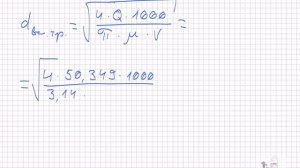 d вн.тр. = √(4·Q·1000 / π·μ·V) =
= √(4·50,349·1000 / 3,14·